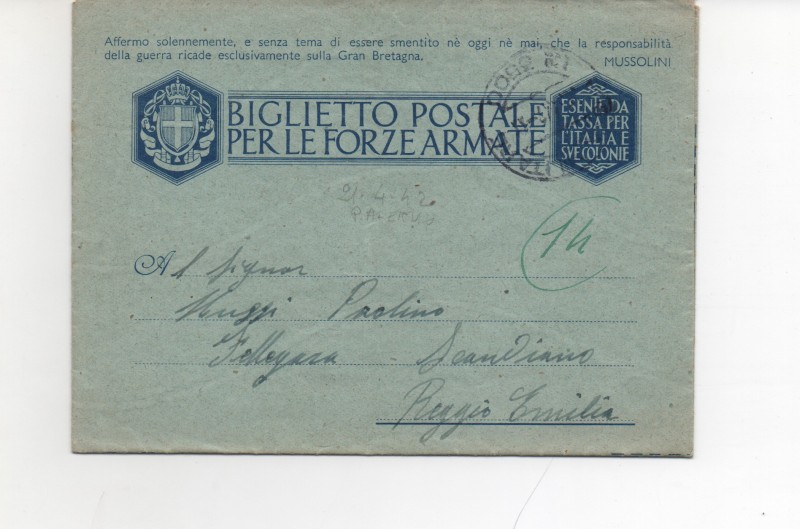 Affermo solennemente, e senza tema di essere smentito nè oggi nè mai, che la responsabilità
della guerra ricade esclusivamente sulla Gran Bretagna.
MUSSOLINI
BIGLIETTO POSTALE
PER LE FORZE ARMATE
ESENTE DA
TASSA PER
L'ITALIA E
SVE COLONIE
21-4-42
14
Al Signor
Paolino
Fellegara - Scandiano
Reggio Emilia